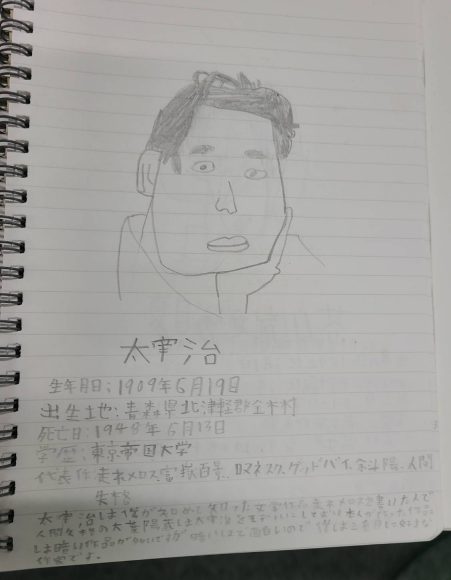 太宰治
生年月日:1909年6月19日
出生土地:青森県北津軽郡金木村
死亡日:1948年6月13日
学歴:東京帝国大学
代表作 走れメロス、富嶽百景、ロマネスク、グッドバイ、斜陽、人間
失格
太宰治は僕がはじめて知った文学作品走れメロスを書いた人で
人間失格の大葉陽蔵は太宰治を
は暗い作品が 暗いけど面白いので僕は 好きな
作家です。